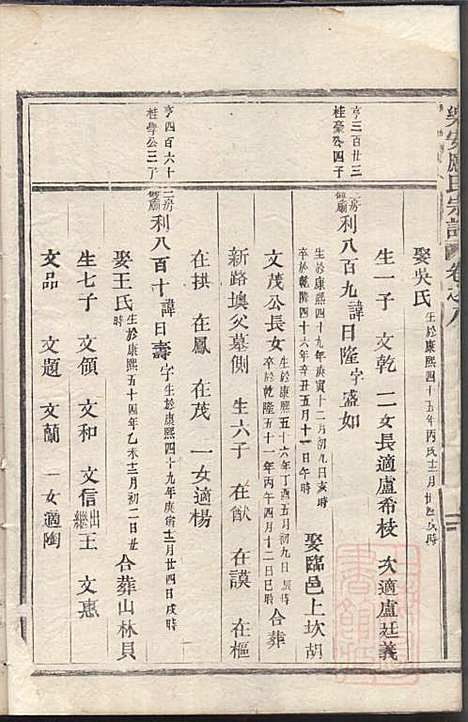 樂安應氏宗譜 卷之八
娶吳氏 生於康熙四十五年丙戌十二月廿四戌時
生一子 文乾 二女長適盧希枝 次適盧廷義
亨三百廿三
桂豪公四子
利八百九諱日隆字盛如
生於康熙四十九年庚寅十二月初九日亥時
卒於乾隆四十六年辛丑五月十一日午時
娶臨邑上坎胡
文茂公長女 生於康熙五十六年丁酉五月初九日辰時
卒於乾隆五十一年丙午四月十二日巳時
合葬
新路墺父墓側 生六子 在猷 在謨 在樞
在拱 在鳳 在茂 一女適楊
亨四百六十二
桂學公三子
利八百十諱日壽字 生於康熙四十九年庚寅十二月廿四日戌時
娶王氏 生於康熙五十四年乙未十二月初二日丑時
合葬山林貝
生七子 文領 文和 文信出繼王 文惠
文品 文題 文蘭 一女適陶